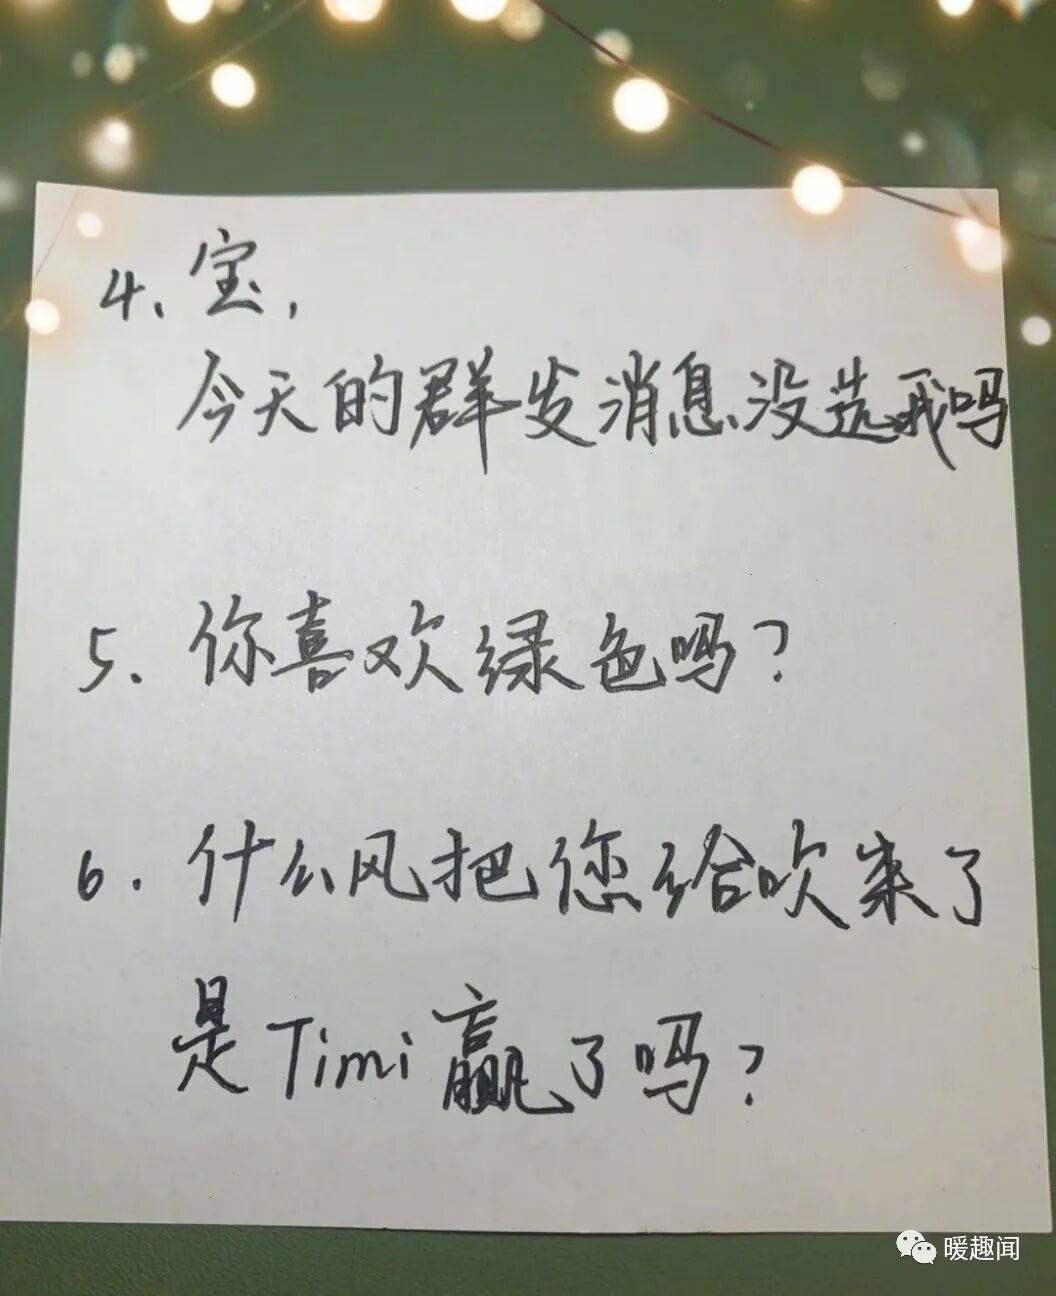 4、宝，
今天的群发消息没选我吗
5. 你喜欢绿色吗？
6. 什么风把您给吹来了
是Timi赢了吗？
暖趣闻